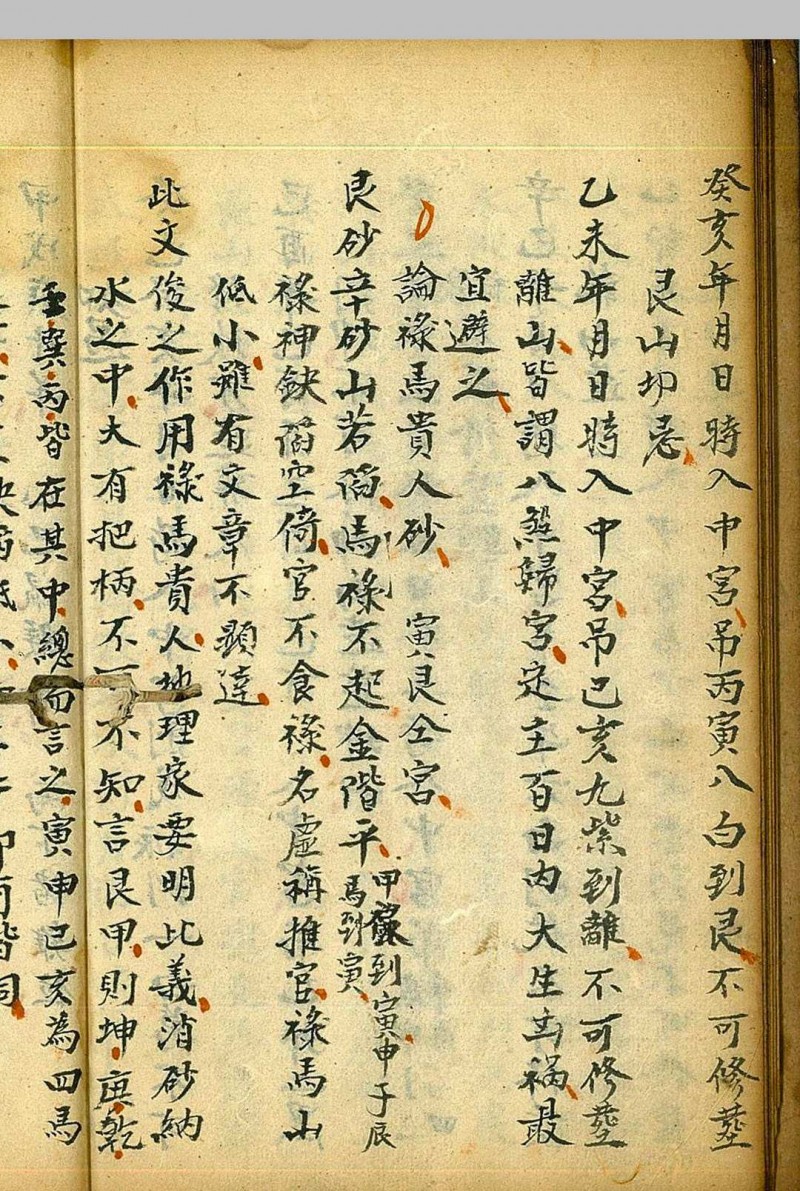 癸亥年月日時入中宮吊丙寅八白到艮不可修蓥
艮山切忌
乙未年月日時入中宮吊己亥九紫到離不可修蓥
離山皆謂八煞歸宮定主百日内大生㐫禍最
宜避之
論祿馬貴人砂 寅艮仝宮
艮砂辛砂山若偹馬祿不起金階平甲祿到寅申子辰馬到寅
祿神缺陷空倚官不食祿名虛稱推官祿馬山
低小雖有文章不顯達
此文俊之作用祿馬貴人地理家要明比義消砂納
水之中大有把柄不可不知言艮甲則坤庚乾
壬巽丙皆在其中總而言之寅申巳亥為四馬